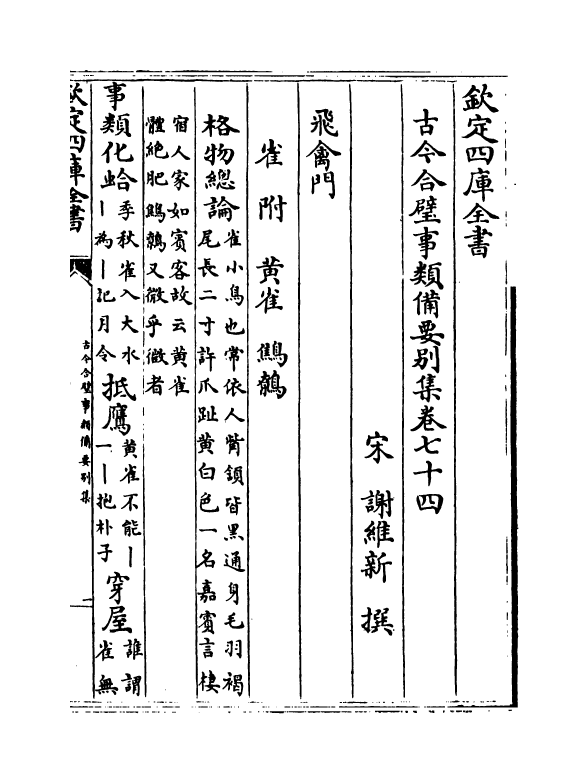 欽定四庫全書
古今合璧事類備要別集卷七十四
宋 謝維新 撰
飛禽門
雀 附 黄雀 鷦鷯
格物總論雀小鳥也常依人觜頷皆黑通身毛羽褐
尾長二寸許爪趾黄白色一名嘉賓言棲
宿人家如賓客故云黄雀
體絶肥鷦鷯又微乎微者
事類化蛤季秋雀入大水
丨為丨記月令
抵鷹黄雀不能丨
一丨抱朴子
穿屋誰謂
雀無
欽定四庫全書
古今合璧事類備要別集
一